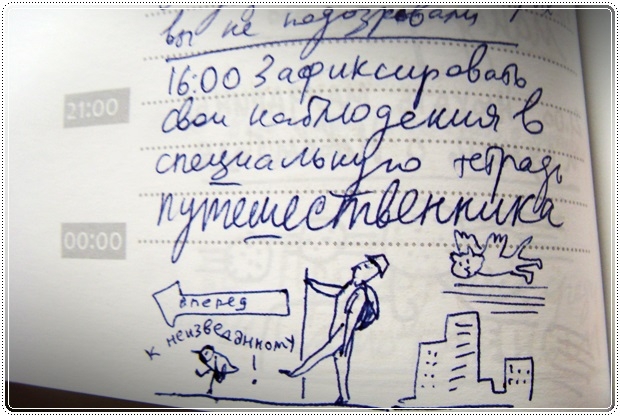 вы не подозревали
16:00 Зафиксировать
21:00
свои наблюдения в
специальную тетрадь
путешественника
00:00
вперед
к неизведанному
!